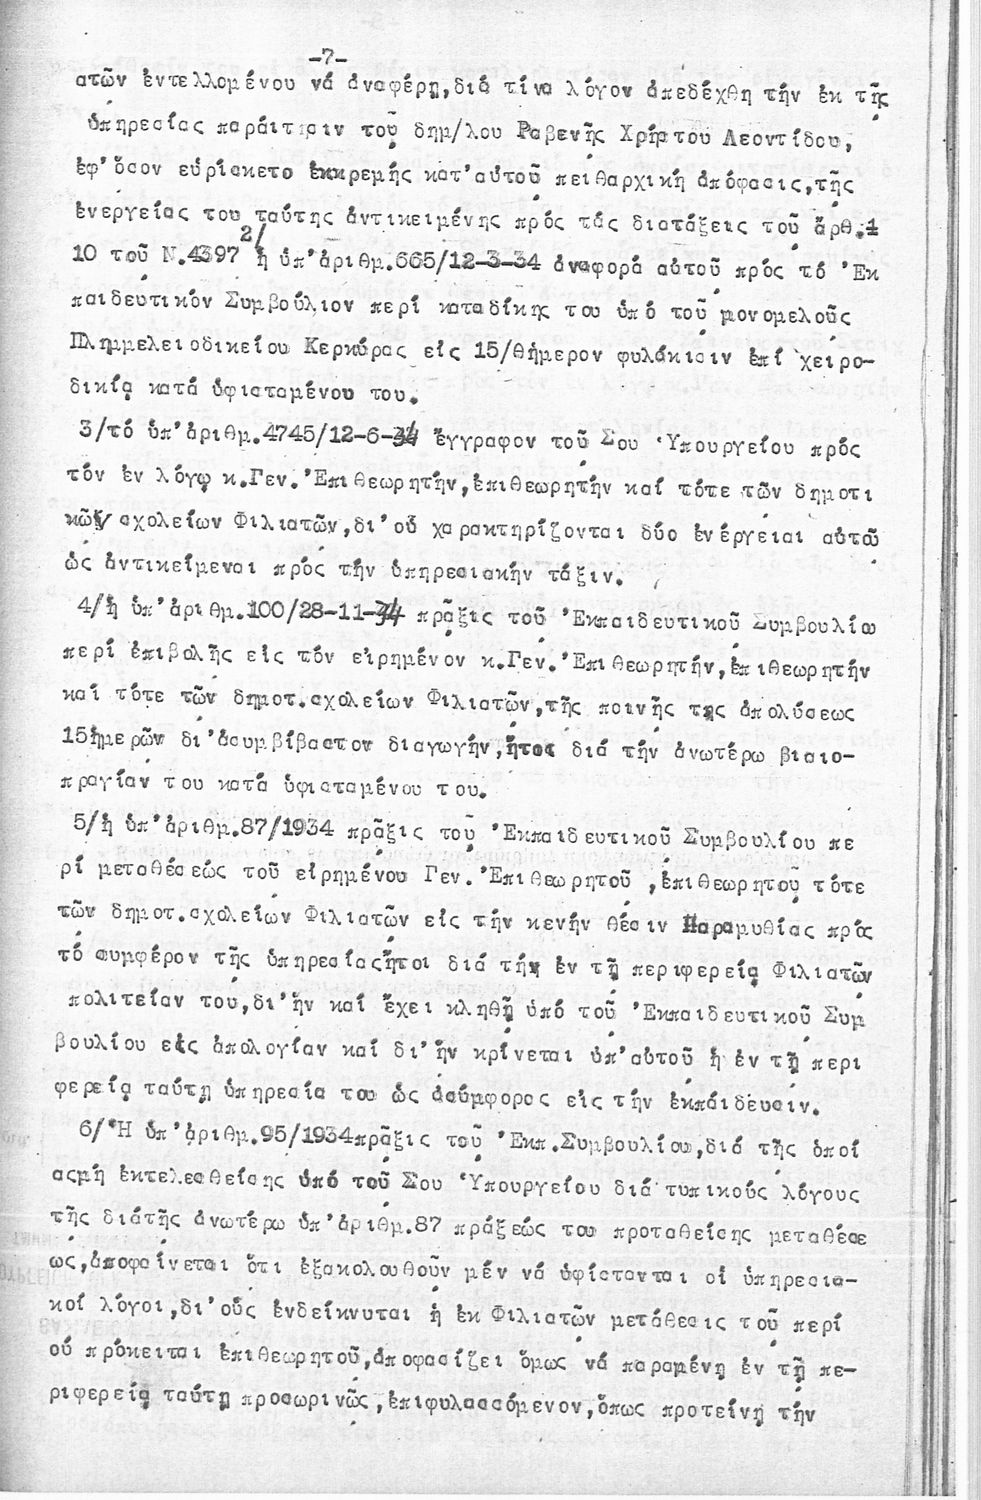 -7-
ατῶν ἐντελλομένου νά ἀναφέρῃ,διά τίνα λόγον ἀπεδέχθη τήν ἐκ τῆς
ὑπηρεσίας παράιτησιν τοῦ δημ/λου Ραβενῆς Χρήστου Λεοντίδου,
ἐφ'ὅσον εὑρίσκετο ἐκκρεμής κατ'αὐτοῦ πειθαρχική ἀπόφασις,τῆς
ἐνεργείας του ταύτης ἀντικειμένης πρός τάς διατάξεις τοῦ ἄρθ.1
10 τοῦ Ν.4397 2/ ἡ ὑπ'ἀριθμ.665/12-3-34 ἀναφορά αὐτοῦ πρός τό Ἐκ
παιδευτικόν Συμβούλιον περί καταδίκης του ὑπό τοῦ μονομελοῦς
Πλημμελειοδικείου Κερκύρας εἰς 15/θήμερον φυλάκισιν ἐπί χειρο-
δικίᾳ κατά ὑφισταμένου του.
3/τό ὑπ'ἀριθμ.4745/12-6-34 ἔγγραφον τοῦ Σου Ὑπουργείου πρός
τόν ἐν λόγῳ κ.Γεν.Ἐπιθεωρητήν,ἐπιθεωρητήν καί τότε τῶν δημοτι
κῶν σχολείων Φιλιατῶν,δι'οὗ χαρακτηρίζονται δύο ἐνέργειαι αὐτοῦ
ὡς ἀντικείμεναι πρός τήν ὑπηρεσιακήν τάξιν.
4/ἡ ὑπ'ἀριθμ.100/28-11-34 πρᾶξις τοῦ Ἐκπαιδευτικοῦ Συμβουλίου
περί ἐπιβολῆς εἰς τόν εἰρημένον κ.Γεν.Ἐπιθεωρητήν,ἐπιθεωρητήν
καί τότε τῶν δημοτ.σχολείων Φιλιατῶν,τῆς ποινῆς της ἀπολύσεως
15ἡμερῶν δι'ἀσυμβίβαστον διαγωγήν,ἤτοι διά τήν ἀνωτέρω βιαιο-
πραγίαν του κατά ὑφισταμένου του.
5/ἡ ὑπ'ἀριθμ.87/1934 πρᾶξις τοῦ Ἐκπαιδευτικοῦ Συμβουλίου πε
ρί μεταθέσεώς τοῦ εἰρημένου Γεν.Ἐπιθεωρητοῦ ,ἐπιθεωρητοῦ τότε
τῶν δημοτ.σχολείων Φιλιατῶν εἰς τήν κενήν θέσιν Παραμυθίας πρός
τό συμφέρον τῆς ὑπηρεσίαςἤτοι διά τήν ἐν τῇ περιφερείᾳ Φιλιατῶν
πολιτείαν του,δι'ἥν καί ἔχει κληθῇ ὑπό τοῦ Ἐκπαιδευτικοῦ Συμ
βουλίου εἰς ἀπολογίαν καί δι'ἥν κρίνεται ὑπ'αὐτοῦ ἡ ἐν τῇ περι
φερείᾳ ταύτῃ ὑπηρεσία του ὡς ἀσύμφορος εἰς τήν ἐκπάιδευσιν.
6/Ἡ ὑπ'ἀριθμ.95/1934πρᾶξις τοῦ Ἐκπ.Συμβουλίου,διά τῆς ὁποί
αςμή ἐκτελεσθείσης ὑπό τοῦ Σου Ὑπουργείου διά τυπικούς λόγους
τῆς διάτῆς ἀνωτέρω ὑπ'ἀριθμ.87 πράξεώς του προταθείσης μεταθέσε
ως,ἀποφαίνεται ὅτι ἐξακολουθοῦν μέν νά ὑφίστανται οἱ ὑπηρεσια-
κοί λόγοι,δι'οὕς ἐνδείκνυται ἡ ἐκ Φιλιατῶν μετάθεσις τοῦ περί
οὗ πρόκειται ἐπιθεωρητοῦ,ἀποφασίζει ὅμως νά παραμένῃ ἐν τῇ πε-
ριφερείᾳ ταύτῃ προσωρινῶς,ἐπιφυλασσόμενον,ὅπως προτείνῃ τήν